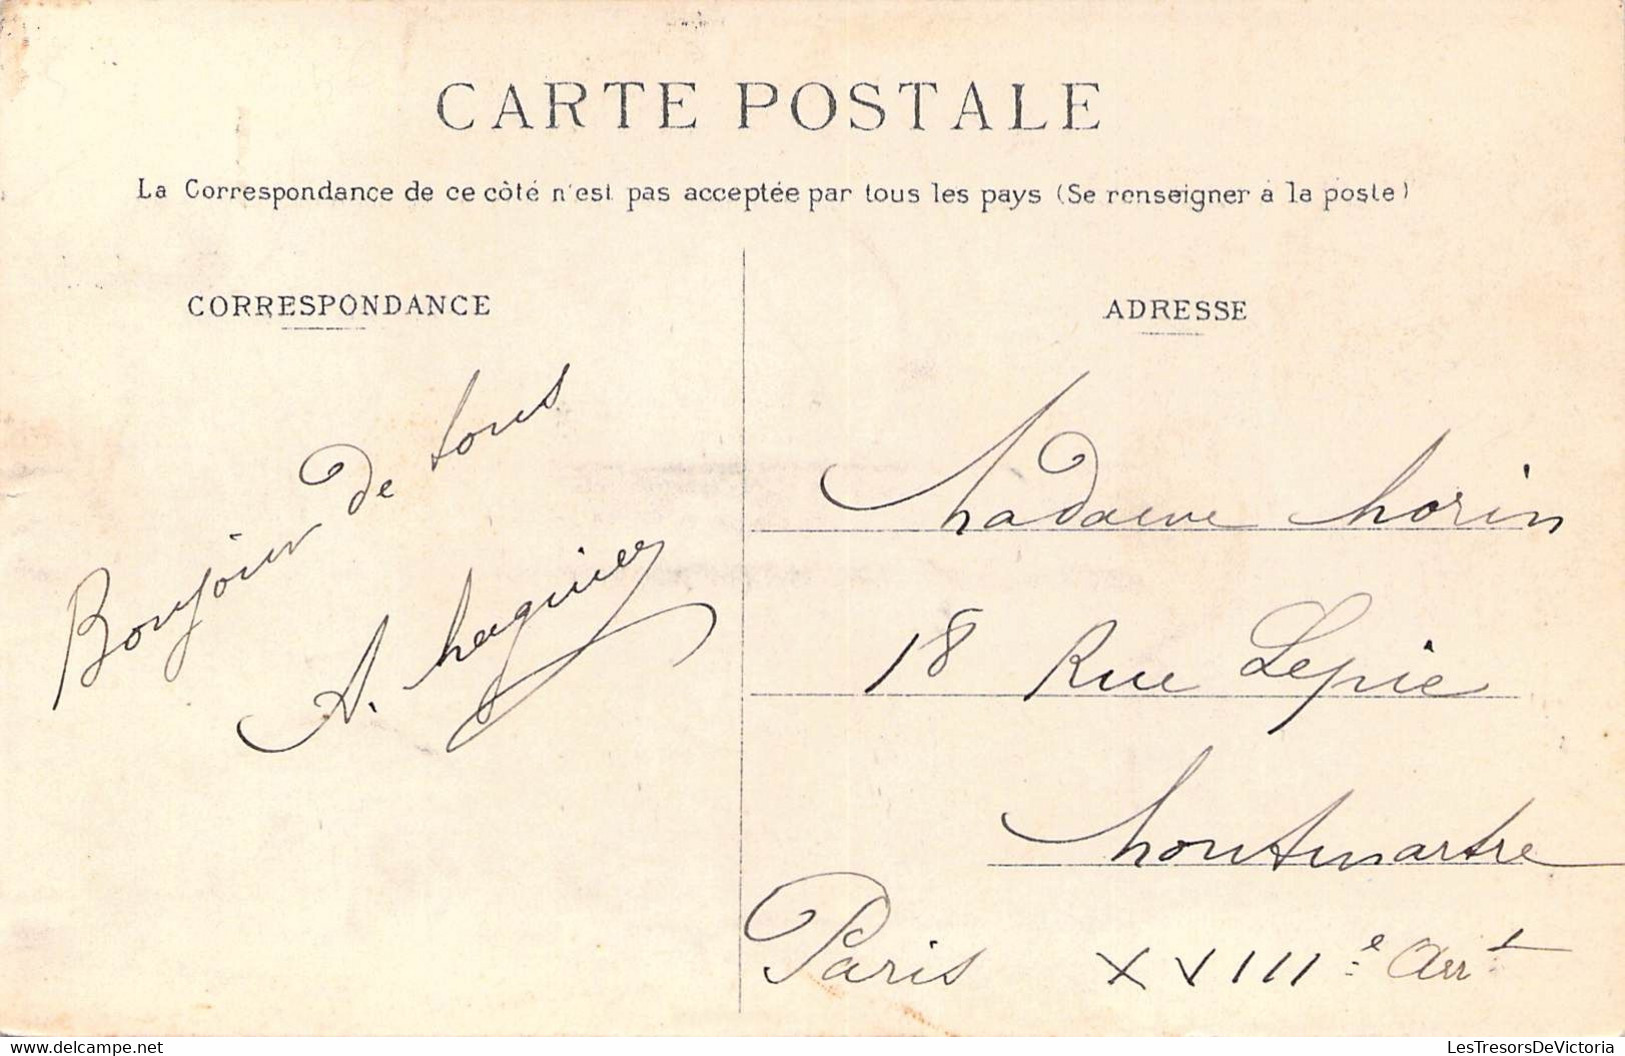 CARTE POSTALE
La Correspondance de ce côté n'est pas acceptée par tous les pays (Se renseigner à la poste)
CORRESPONDANCE
Bonjour de tous
A.
ADRESSE
Madame Morin
18 Rue Lepic
Montmartre
Paris XVIIIe Arrt
LesTresorsDeVictoria